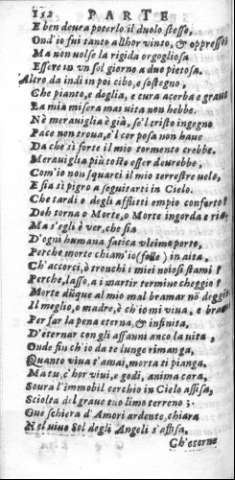 152 PARTE
E ben deura poterlo il duolo stesso,
Ond'io fui tanto alhor vinto, & oppresso
Ma non volse la rigida orgogliosa
Essere in vn sol giorno a due pietosa.
Altro da indi in poi cibo, e sostegno,
Che pianto, e doglia, e cura acerba e graue
La mia misera mai vita non hebbe.
Nè merauiglia è già, se'l tristo ingegno
Pace non troua, e'l cor posa non haue
Da che sì forte il mio tormento crebbe.
Merauiglia più tosto esser dourebbe,
Com'io non squarci il mio terrestre velo,
E sia sì pigro a seguitarti in Cielo.
Che tardi e degli afflitti empio conforto?
Deh torna o Morte, o Morte ingorda e ria
Ma s'egli è ver, che sia
D'ogni humana fatica vltimo porto,
Perche morte chiam'io (folle) in aita,
Ch'accorci, ò tronchi i miei noiosi stami?
Perche, lasso, a i martir termine cheggio?
Morte dũque al mio mal bramar nõ deggio
Il meglio, o madre, è ch'io mi viua, e brami
Per far la pena eterna, & infinita,
D'eternar con gli affanni anco la vita,
Onde fia ch'io da te lunge rimanga,
Quanto viua t'amai, morta ti pianga.
Ma tu, c'hor viui, e godi, anima cara,
Soura l'immobil cerchio in Cielo assisa,
Sciolta del graue tuo limo terreno;
Oue schiera d'Amori ardente, chiara
Nel viuo Sol degli Angeli s'affisa,
Ch'eterne